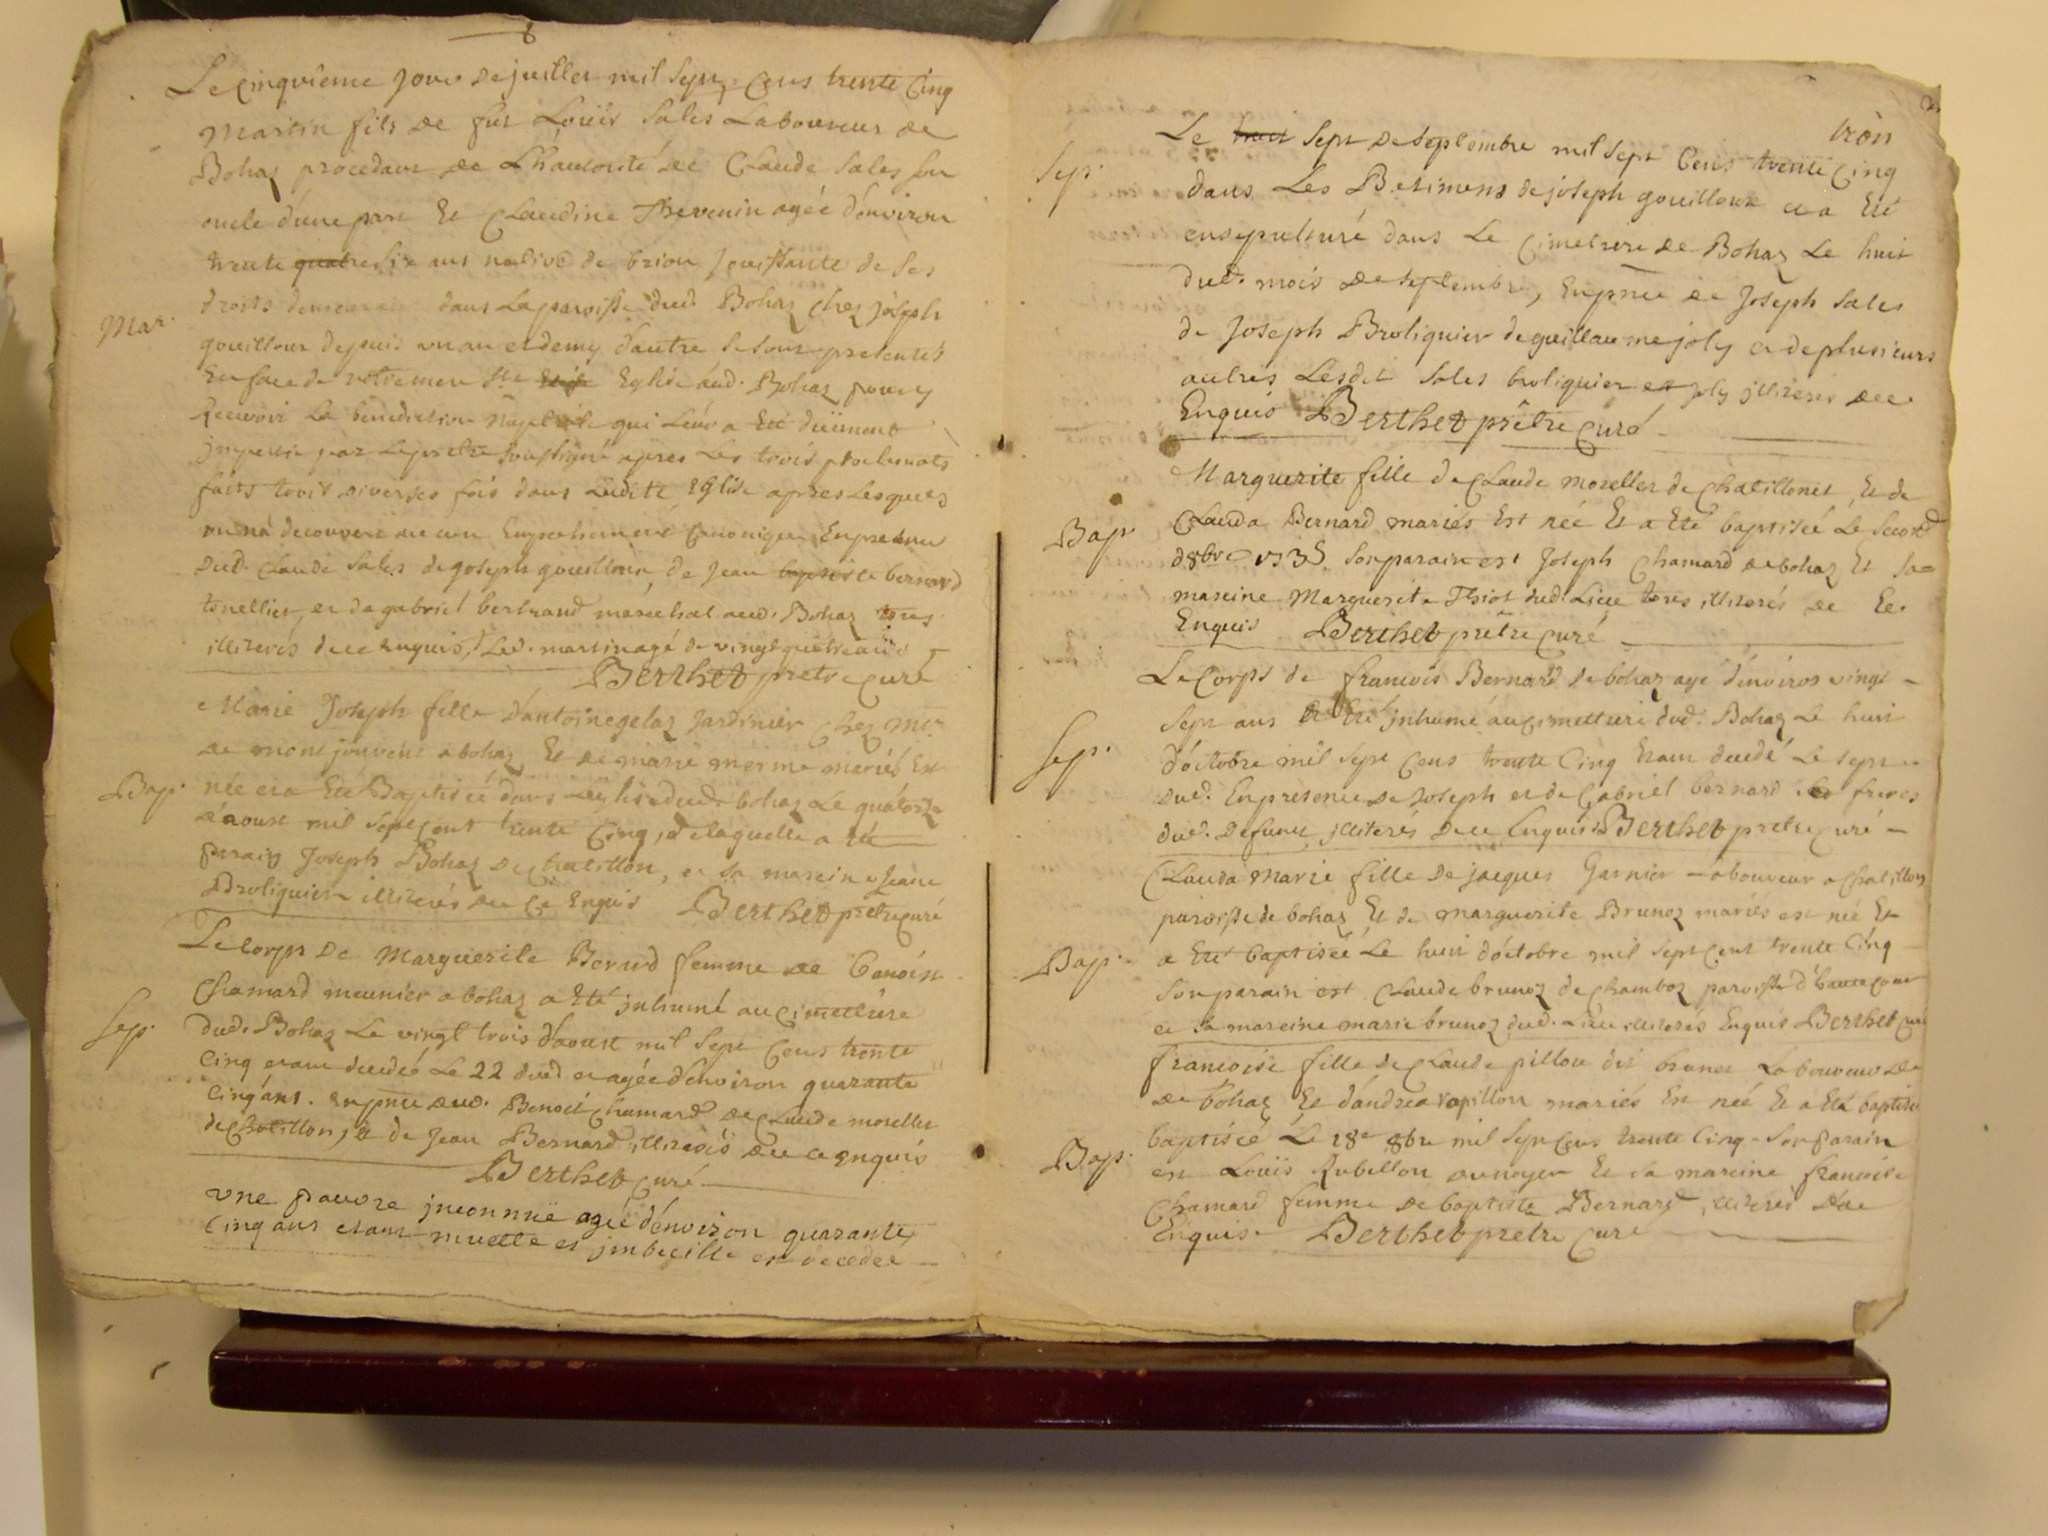 8
Le cinquieme jour de juillet mil sept cens trente cinq
Martin fils de fut Loüis Sales Laboureur de
Bohaz procedant de L'hautorité de Claude Sales son
oncle d'une part Et Claudine Thevenin agée d'environ
trente quatre six ans native de brion jouissante de ses
droits dans la paroisse dud. Bohaz chez joseph
Mar.
gouilloux depuis un an et demy d'autre se sont presentés
En face de notre mere Ste Eglise aud. Bohaz pour y
Recevoir La benediction qui Leur a Eté düement
jmpartie par Le prêtre soussigné apres Les trois proclamats
faits trois diverses fois dans Ladite Eglise apres Lesquels
on n'a decouvert aucun Empechement Canonique En presence
dud. Claude Sales de joseph gouilloux, de Jean baptiste bernard
tonellier, et de gabriel bertrand maréchal aud. Bohaz tous
illiterés de ce enquis, Led. martin agé de vingt quatre ans
Berthet prêtre curé
Marie Joseph fille d'antoine gelaz Jardinier chez Mr.
de montjouvent a bohaz, Et de marie merme mariés Est
Bap.
née et a Eté Baptisée dans L'eglise dud. bohaz Le quatorze
d'aoust mil sept cent trente cinq, de laquelle a Eté
parain Joseph Bohaz de chatillon, et sa mareine jeane
Broliquier illiterés de ce Enquis Berthet prêtre curé
Le corps de Marguerite Berard femme de Benoist
Chamard meunier a bohaz a Eté jnhumé au cimettiere
Sep.
dud. Bohaz Le vingt trois d'aoust mil sept cens trente
cinq etant decedée Le 22 dud et agée d'environ quarante
cinq ans. en pnce dud. Benoit Chamard de Claude morellet
de Chatillon, & de Jean Bernard illiterés de ce enquis
Berthet curé
une pauvre jnconnuë agée d'environ quarante
cinq ans etant muette et jmbecille est decedée
tròn
Le huit sept de septembre mil sept Cens trente Cinq
Sep.
dans Les Batimens de joseph gouilloux et a Eté
ensepulturé dans Le Cimetiere de Bohaz Le huit
dud. mois de septembre, En pnce de Joseph Sales
de Joseph Broliquier de guillaume joly et de plusieurs
autres Lesdit Sales broliquier et joly illiterés de ce
Enquis Berthet prêtre Curé
Marguerite fille de Claude morellet de Chatillonet, Et de
Bap.
Clauda Bernard mariés Est née Et a Eté baptisée Le second
d'8bre 1735 Son parain est Joseph Chamard de bohaz Et sa
mareine Marguerite Thiot dud. Lieu tous illiterés de Ce
Enquis Berthet prêtre curé
Le Corps de francois Bernard de bohaz agé d'environ vingt
sept ans a Eté jnhumé au cimettiere dud. Bohaz Le huit
Sep.
d'octobre mil sept cens trente cinq Etant decedé Le sept
dud. En presence de Joseph et de Gabriel bernard freres
dud. Defunt, illiterés de ce Enquis Berthet prêtre curé
Clauda Marie fille de jacques Garnier Laboureur a Chatillon
paroisse de bohaz Et de marguerite Brunoz mariés est née Et
Bap.
a Eté baptisée Le huit d'octobre mil sept cent trente cinq
Son parain est Claude brunoz de Chamboz paroisse d'hautecour
et sa mareine marie brunoz dud. Lieu illiterés Enquis Berthet curé
francoise fille de Claude pillon dit brunet Laboureur de
de bohaz Et d'andrea rapillon mariés Est née Et a Eté baptisé
Bap.
baptisée Le 18e 8bre mil sept cens trente cinq. Son parain
est Louïs Rubellon au noyer Et sa mareine francoise
Chamard femme de baptiste Bernard, illiterés de ce
Enquis. Berthet prêtre curé